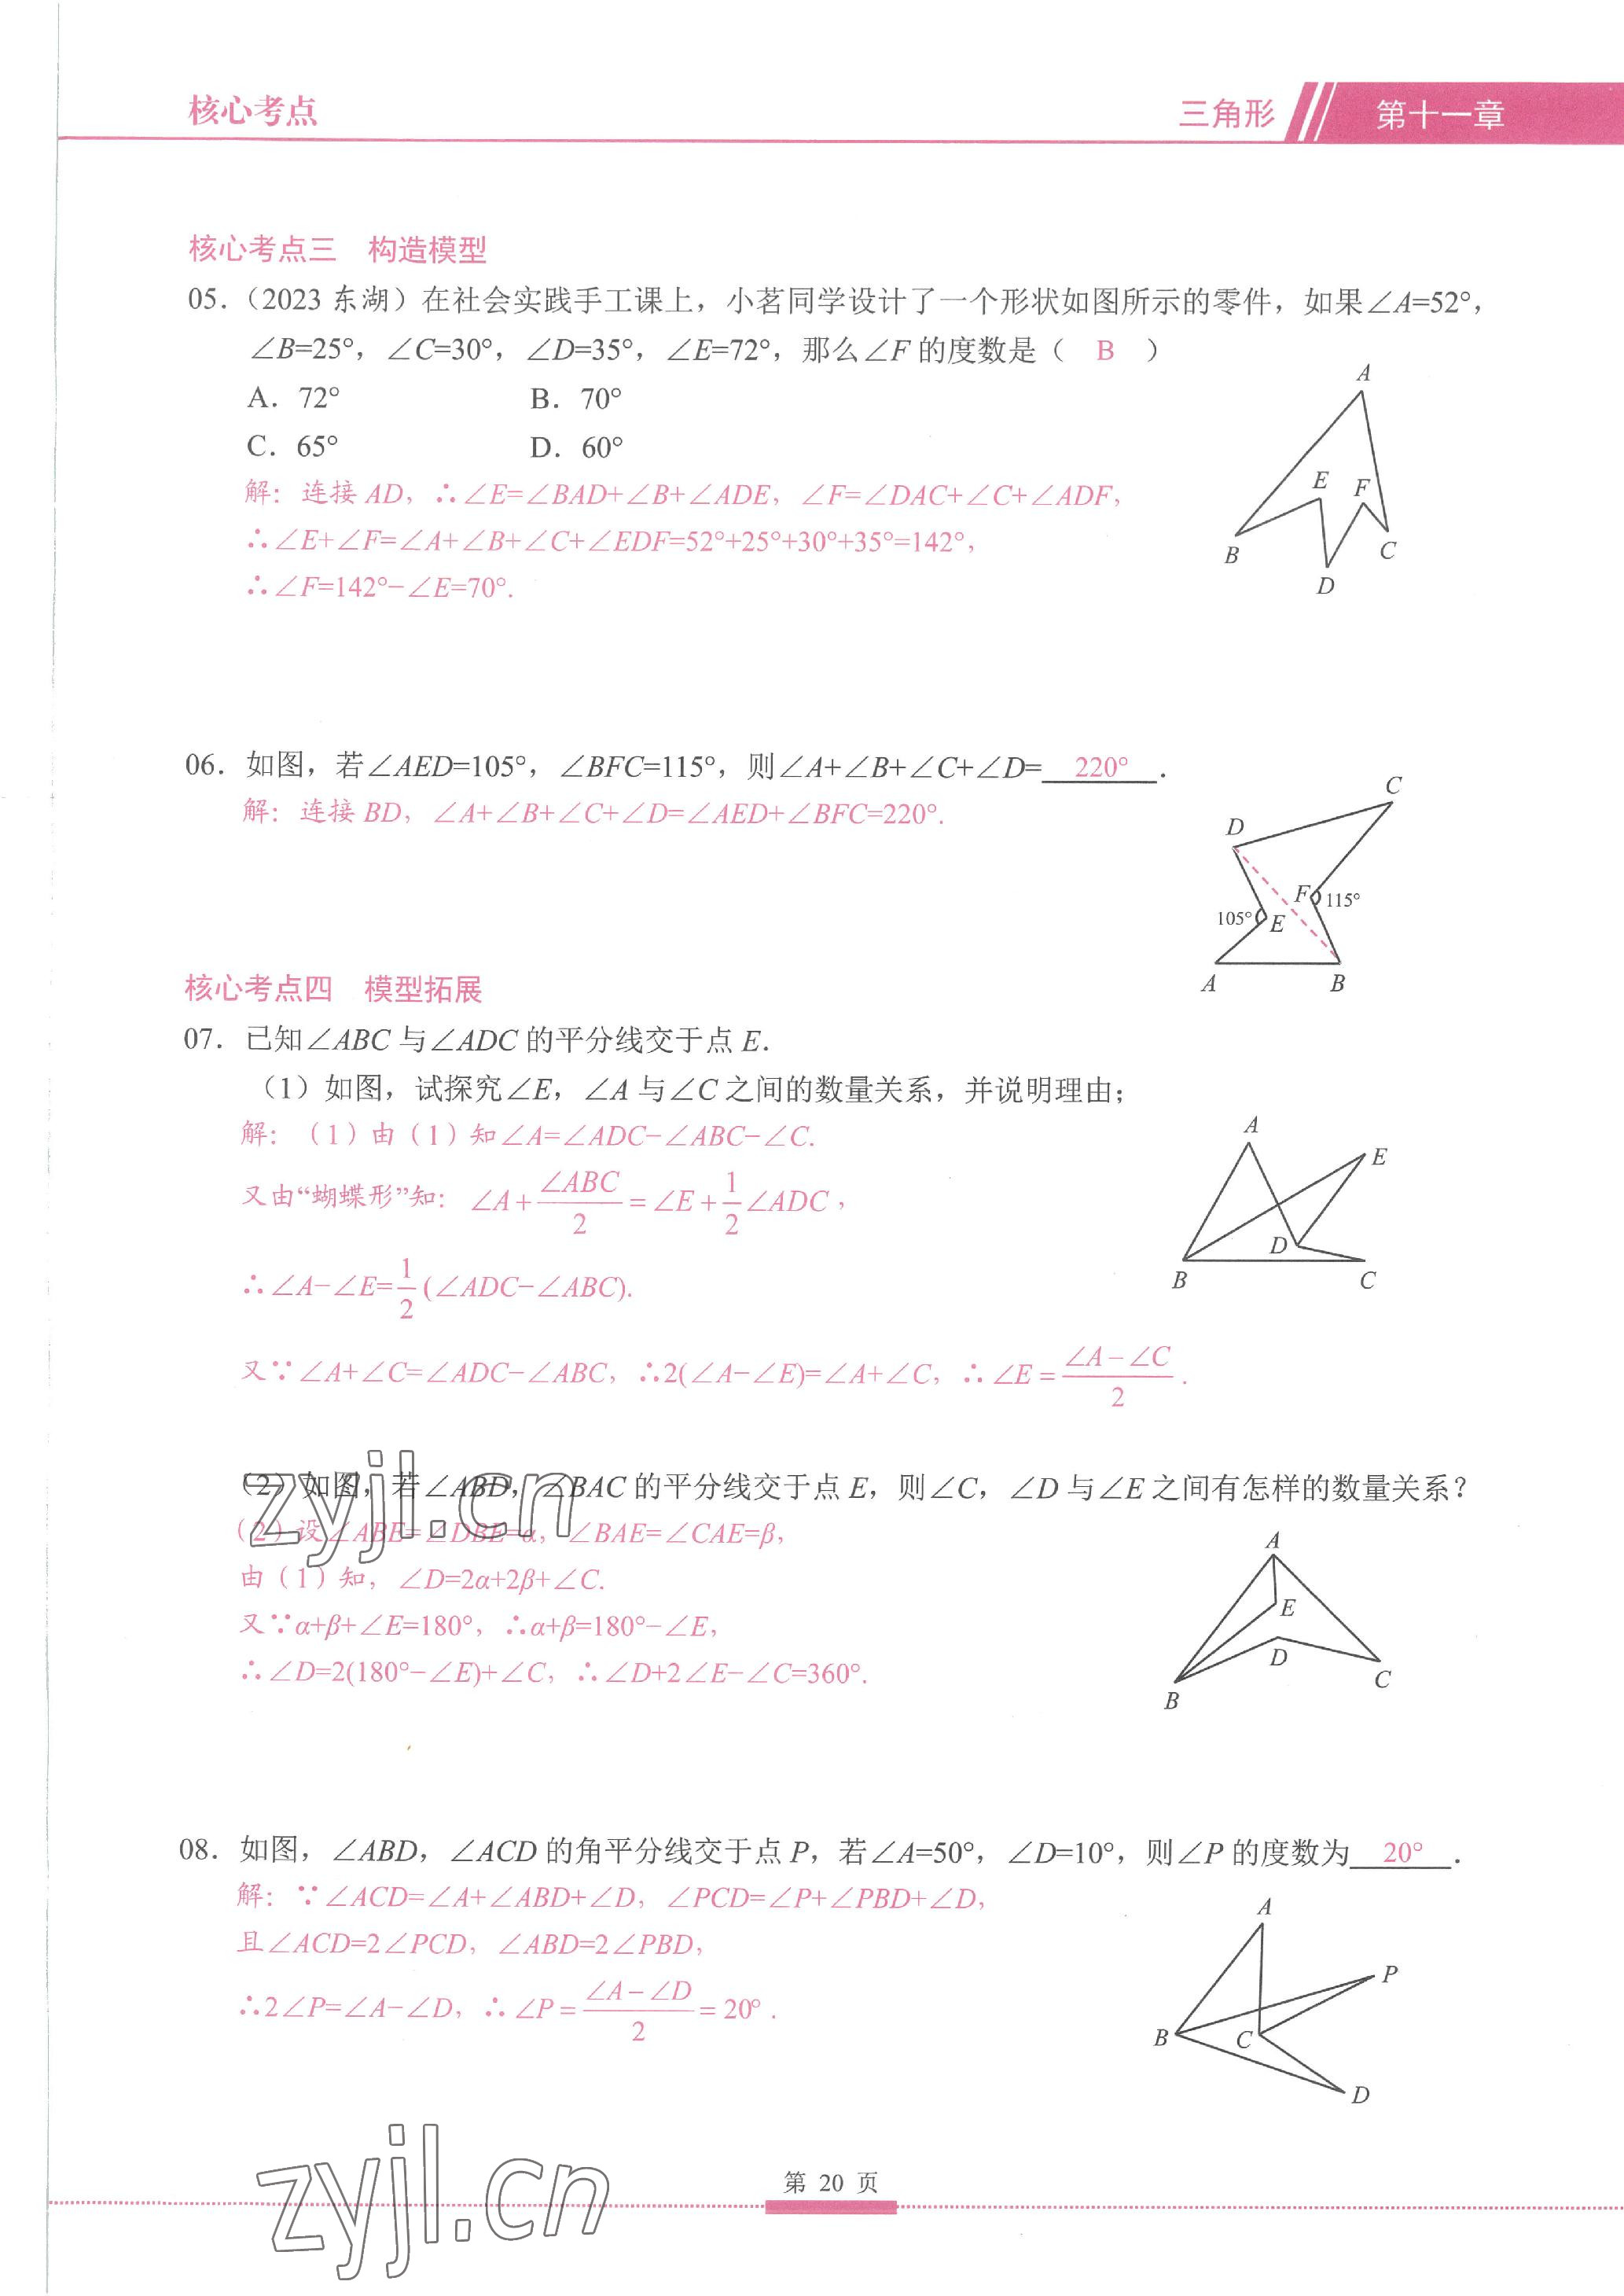 核心考点
三角形 第十一章
核心考点三 构造模型
05.（2023 东湖）在社会实践手工课上，小茗同学设计了一个形状如图所示的零件，如果∠A=52°，
∠B=25°，∠C=30°，∠D=35°，∠E=72°，那么∠F 的度数是（ B ）
A．72° B．70°
C．65° D．60°
解：连接 AD，∴∠E=∠BAD+∠B+∠ADE，∠F=∠DAC+∠C+∠ADF，
∴∠E+∠F=∠A+∠B+∠C+∠EDF=52°+25°+30°+35°=142°，
∴∠F=142°−∠E=70°.
A
E
F
B
C
D
06．如图，若∠AED=105°，∠BFC=115°，则∠A+∠B+∠C+∠D= 220° .
解：连接 BD，∠A+∠B+∠C+∠D=∠AED+∠BFC=220°.
C
D
F 115°
105° E
A B
核心考点四 模型拓展
07．已知∠ABC 与∠ADC 的平分线交于点 E.
（1）如图，试探究∠E，∠A 与∠C 之间的数量关系，并说明理由；
解：（1）由（1）知∠A=∠ADC−∠ABC−∠C.
又由“蝴蝶形”知：∠A+∠ABC/2=∠E+1/2∠ADC，
∴∠A−∠E=1/2(∠ADC−∠ABC).
又∵∠A+∠C=∠ADC−∠ABC，∴2(∠A−∠E)=∠A+∠C，∴∠E=(∠A−∠C)/2.
A
E
D
B C
（2）如图，若∠ABD，∠BAC 的平分线交于点 E，则∠C，∠D 与∠E 之间有怎样的数量关系？
（2）设∠ABE=∠DBE=α，∠BAE=∠CAE=β，
由（1）知，∠D=2α+2β+∠C.
又∵α+β+∠E=180°，∴α+β=180°−∠E，
∴∠D=2(180°−∠E)+∠C，∴∠D+2∠E−∠C=360°.
A
E
D
C
B
zyjl.cn
08．如图，∠ABD，∠ACD 的角平分线交于点 P，若∠A=50°，∠D=10°，则∠P 的度数为 20° .
解：∵∠ACD=∠A+∠ABD+∠D，∠PCD=∠P+∠PBD+∠D，
且∠ACD=2∠PCD，∠ABD=2∠PBD，
∴2∠P=∠A−∠D，∴∠P=(∠A−∠D)/2=20°.
A
P
B C
D
zyjl.cn
第 20 页